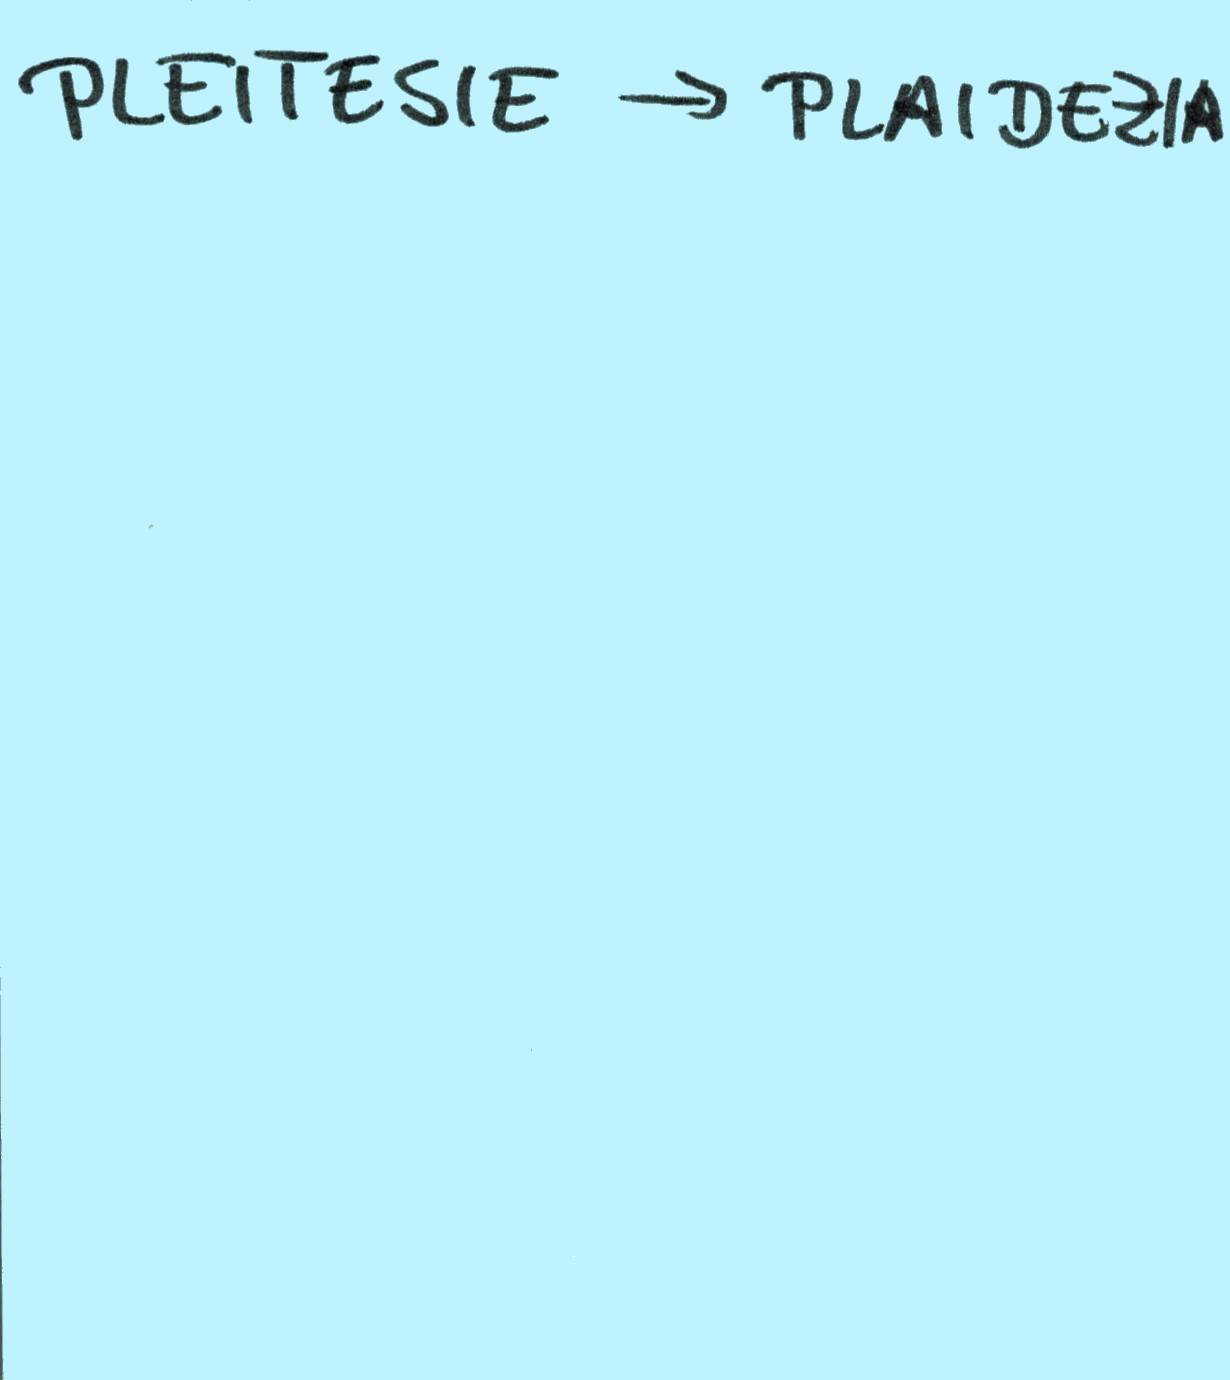 PLEITESIE → PLAIDEZIA